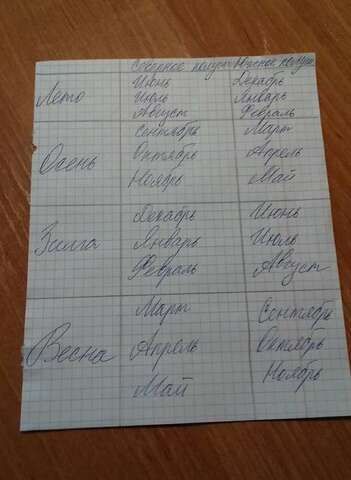 Северное полуш Южное полуш
Июнь Декабрь
Лето Июль Январь
Август Февраль
Сентябрь Март
Осень Октябрь Апрель
Ноябрь Май
Декабрь Июнь
Зима Январь Июль
Февраль Август
Март Сентябрь
Весна Апрель Октябрь
Май Ноябрь